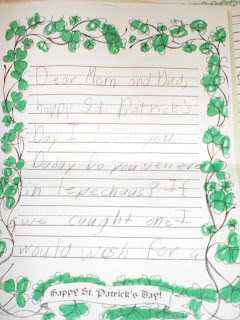 Dear Mom and Dad,
happy St Patrick's
Day I you
Daddy Do you
in lepechaus? If
we caught one I
would wish for a
Happy St. Patrick's Day!